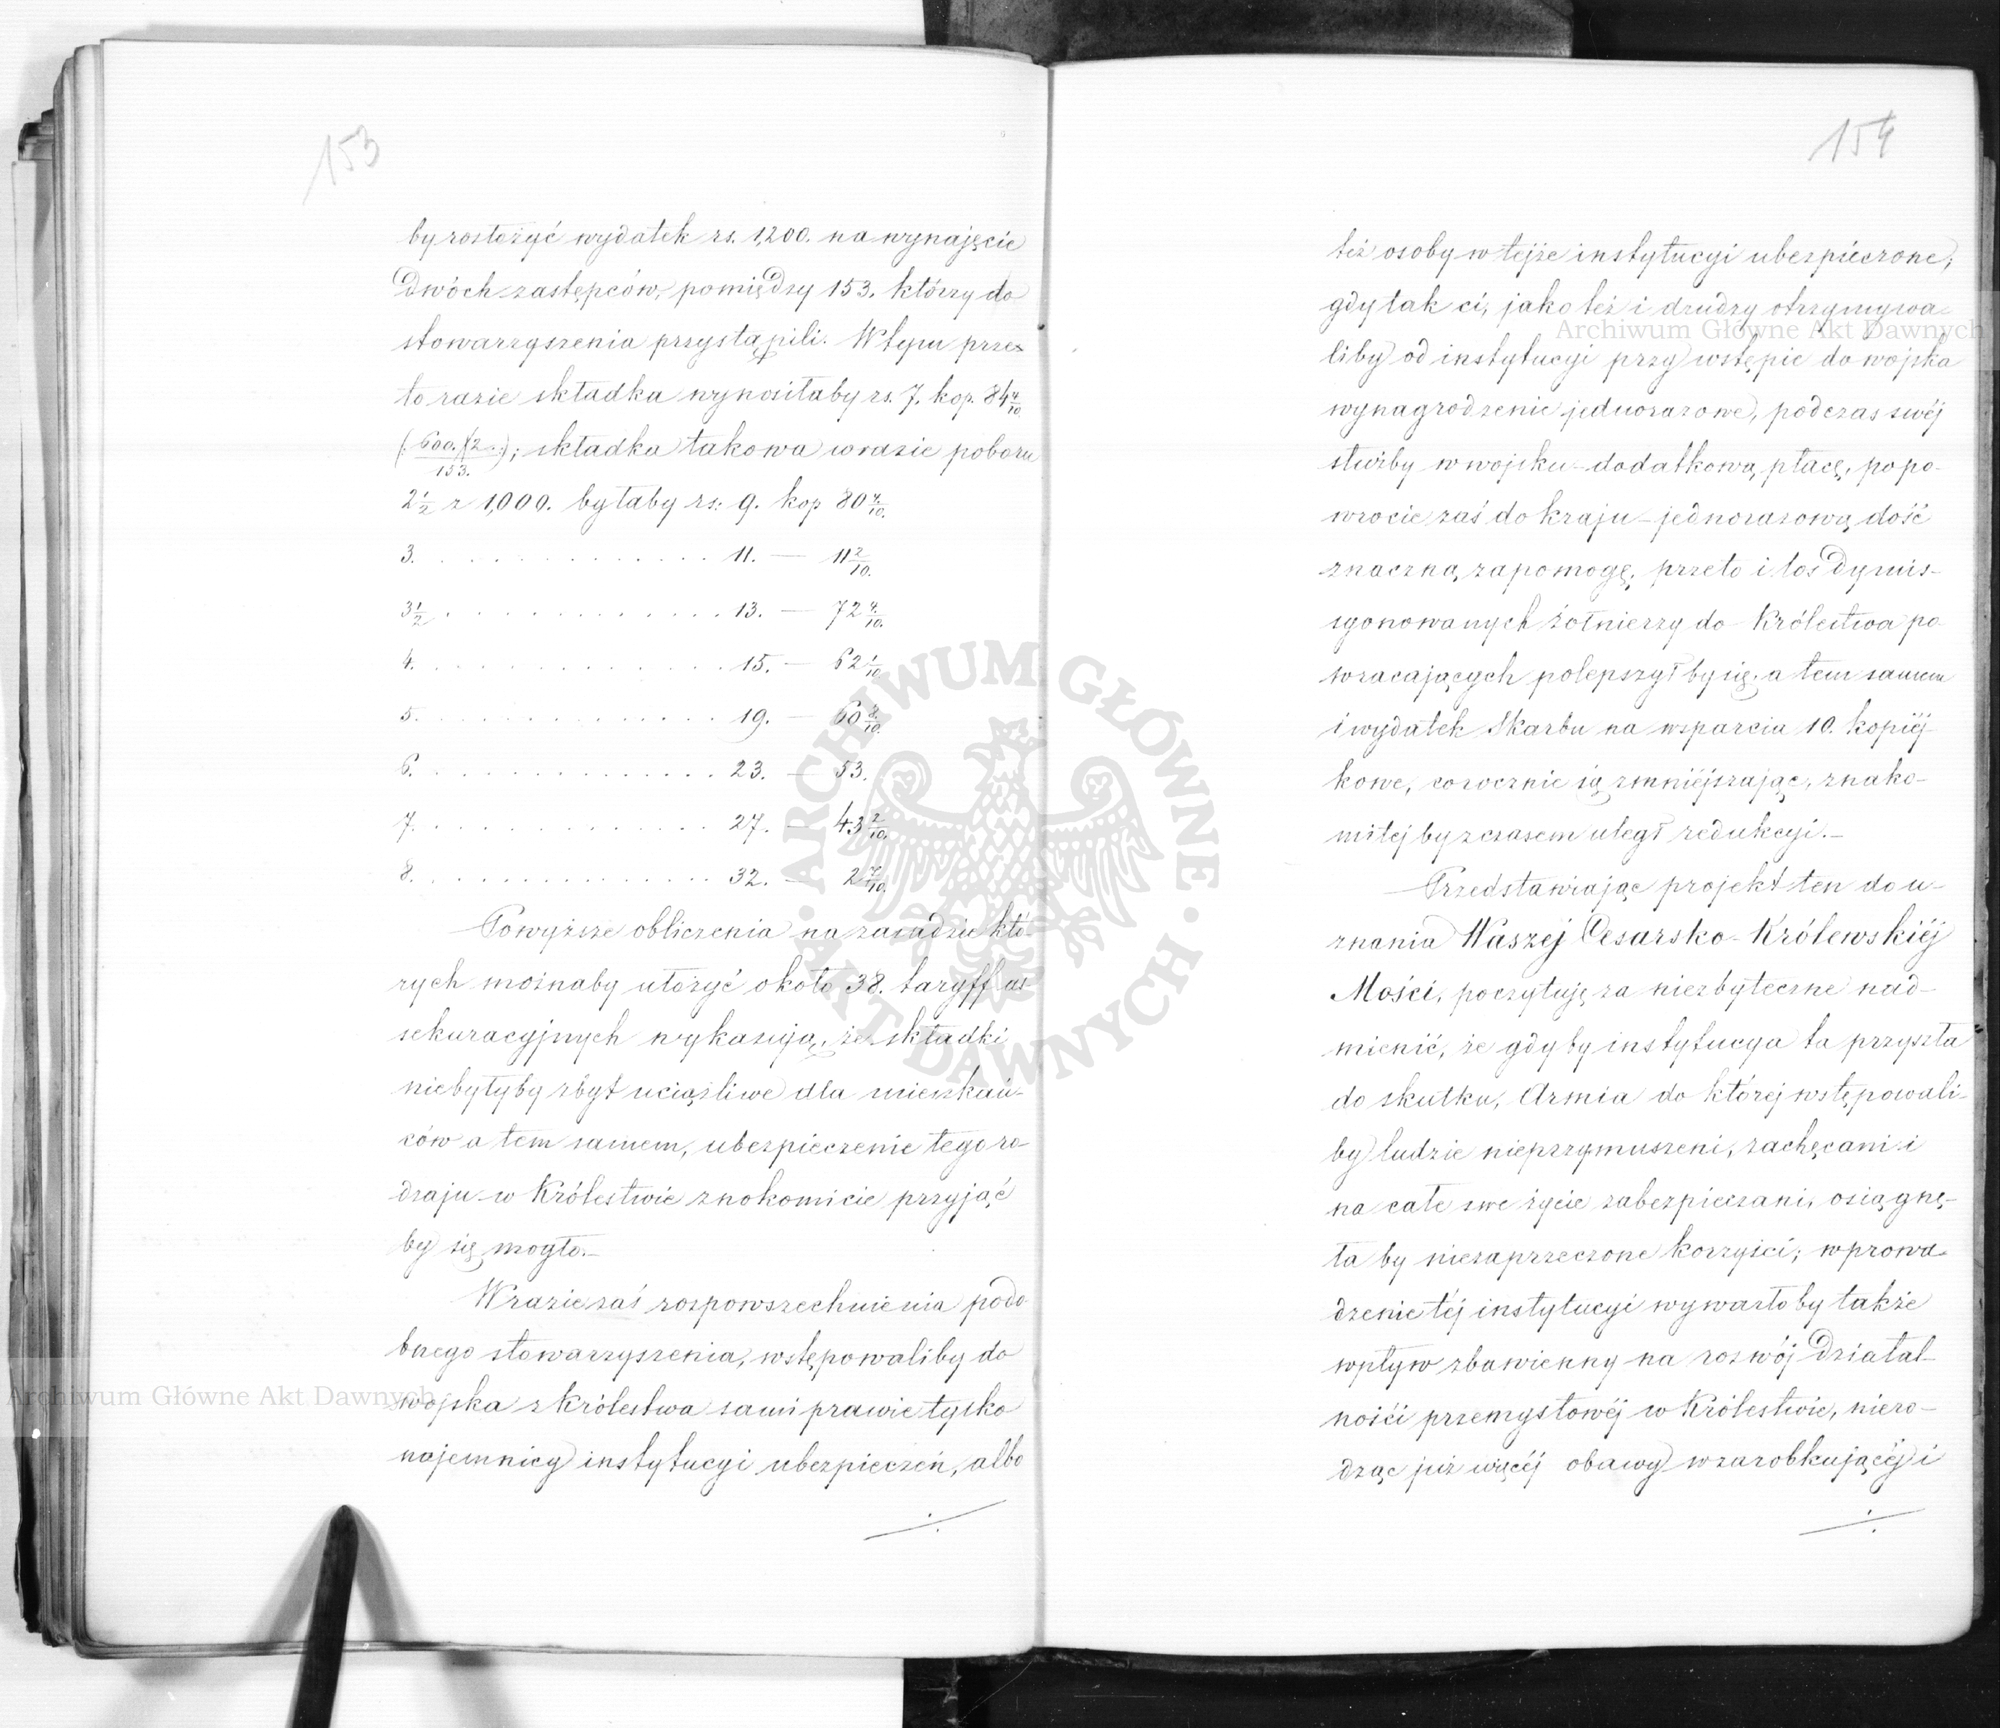 153
by rostożyć wydatek rs. 1,200. na wynajęcie
Dwóch zastępców, pomiędzy 153. którzy do
stowarzyszenia przystąpili. W tym prze-
to razie składka wynosiłaby rs. 7. kop. 84 4/10
(: 600. X 2. / 153. :); składka takowa w razie poboru
2 1/2 z 1,000. byłaby rs. 9. kop 80 4/10.
3. . . . . . . . . . . . . . 11. — 11 2/10.
3 1/2 . . . . . . . . . . . . . 13. — 72 4/10.
4. . . . . . . . . . . . . . 15. — 62 1/10.
5. . . . . . . . . . . . . . 19. — 60 8/10.
6. . . . . . . . . . . . . . 23. — 53.
7. . . . . . . . . . . . . . 27. — 43 2/10.
8. . . . . . . . . . . . . . 32. — 2 7/10.
Powyższe obliczenia na zasadzie któ-
rych możnaby ułożyć około 38. taryff as-
sekuracyjnych wykazują, że składki
niebyłyby zbyt uciążliwe dla mieszkań-
ców a tem samem, ubezpieczenie tego ro-
dzaju w Królestwie znakomicie przyjąć
by się mogło.—
W razie zaś rozpowszechnienia podo
bnego stowarzyszenia, wstępowaliby do
wojska z Królestwa sami prawie tylko
najemnicy instytucyi ubezpieczeń, albo
154
też osoby w tejże instytucyi ubezpieczone,
gdy tak ci, jako też i drudzy otrzymywa-
liby od instytucyi przy wstępie do wojska
wynagrodzenie jednorazowe, podczas swéj
służby w wojsku – dodatkową płacę, po po-
wrocie zaś do kraju – jednorazową dość
znaczną zapomogę, przeto i los Dymis-
syonowanych żołnierzy do Królestwa po
wracających polepszył by się, a tem samem
i wydatek Skarbu na wsparcia 10. kopiéj-
kowe, corocznie się zmniéjszając, znako-
mitej by z czasem uległ redukcyi.—
Przedstawiając projekt ten do u-
znania Waszej Cesarsko-Królewskiéj
Mości, poczytuję za niezbyteczne nad-
mienić, że gdyby instytucya ta przyszła
do skutku, Armia do której wstępowali-
by ludzie nieprzymuszeni, zachęcani i
na całe swe życie zabezpieczani, osiągnę-
ła by niezaprzeczone korzyści; wprowa-
dzenie téj instytucyi wywarło by także
wpływ zbawienny na rozwój Działal-
ności przemysłowéj w Królestwie, niero-
dząc już więcéj obawy w zarobkującéj i
Archiwum Główne Akt Dawnych
Archiwum Główne Akt Dawnych
ARCHIWUM GŁÓWNE · AKT DAWNYCH ·